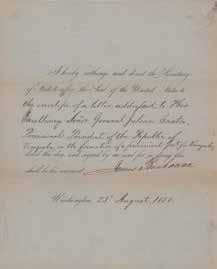 I hereby authorize and direct the Secretary
of State to affix the Seal of the United States to
the envelope of a letter addressed to His
Excellency Señor General Julian Castro,
Provisional President of the Republic of
Venezuela, on the formation of a provisional Govt. for Venezuela,
dated this day, and signed by me and for so doing this
shall be his warrant.
James Buchanan
Washington, 23d August, 1858.